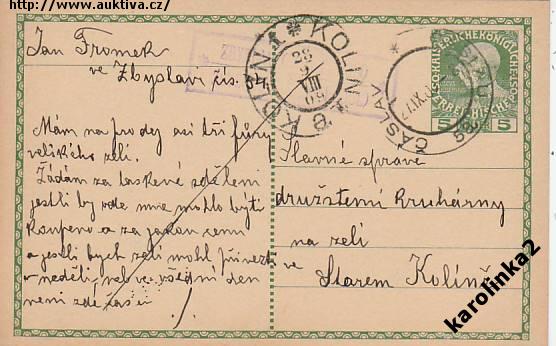 http://www.auktiva.cz
Jan Fromek
ve Zbyslavi čís. 34
KOLÍN
KOLIN
ČÁSLAV
5 5
Mám na prodej asi tři fůry
velikého zelí.
Žádám za laskavé sdělení
jestli by ode mne mohlo býti
koupeno a za jakou cenu
a jestli bych zelí mohl přivezti
v neděli, neb ve všední den
není zde času
Slavné správě
družstevní kruhárny
na zelí
ve Starém Kolíně
karolinka2